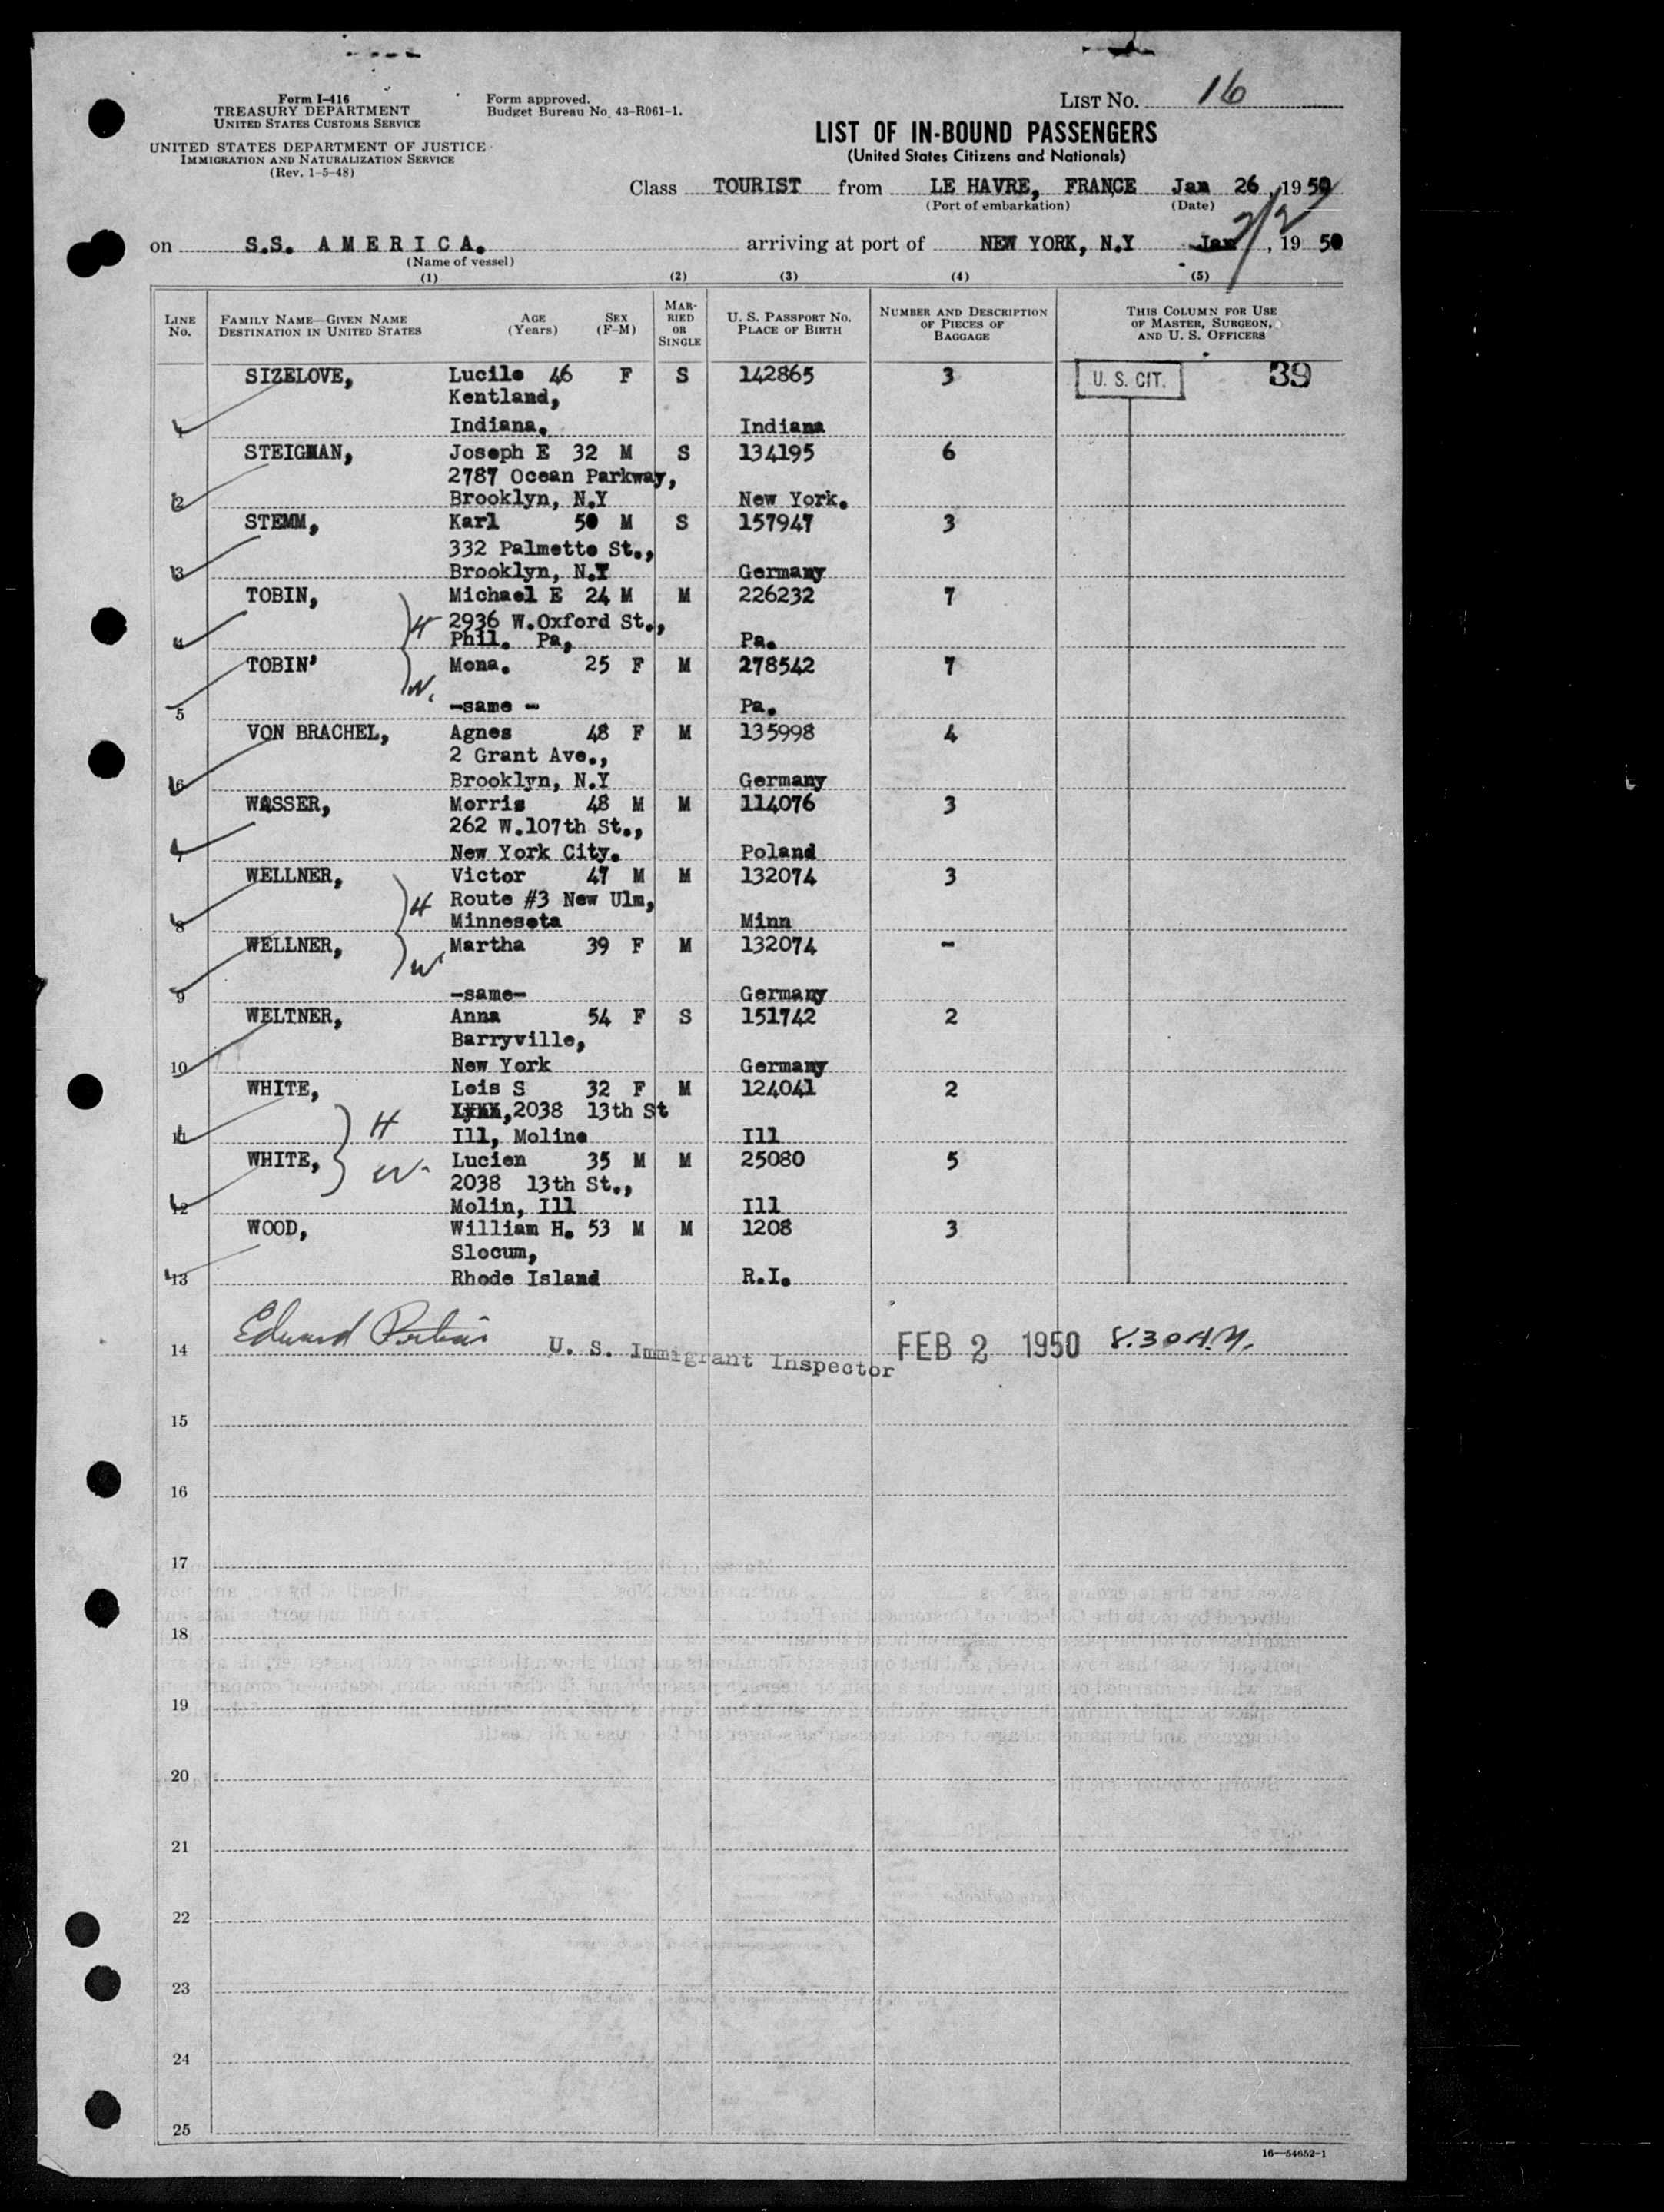 Form I-416
TREASURY DEPARTMENT
UNITED STATES CUSTOMS SERVICE
UNITED STATES DEPARTMENT OF JUSTICE
IMMIGRATION AND NATURALIZATION SERVICE
(Rev. 1-5-48)
Form approved.
Budget Bureau No. 43-R061-1.
LIST No. 16
LIST OF IN-BOUND PASSENGERS
(United States Citizens and Nationals)
Class TOURIST from LE HAVRE, FRANCE Jan 26, 1950
(Port of embarkation) (Date)
on S.S. AMERICA. arriving at port of NEW YORK, N.Y Jan 2/2, 19 50
(Name of vessel)
(1) (2) (3) (4) (5)
LINE No. FAMILY NAME—GIVEN NAME DESTINATION IN UNITED STATES AGE (Years) SEX (F-M) MARRIED OR SINGLE U. S. PASSPORT No. PLACE OF BIRTH NUMBER AND DESCRIPTION OF PIECES OF BAGGAGE THIS COLUMN FOR USE OF MASTER, SURGEON, AND U. S. OFFICERS
SIZELOVE, Lucile 46 F S 142865 3 U. S. CIT. 39
Kentland,
1 Indiana. Indiana
STEIGMAN, Joseph E 32 M S 134195 6
2787 Ocean Parkway,
2 Brooklyn, N.Y New York.
STEMM, Karl 50 M S 157947 3
332 Palmetto St.,
3 Brooklyn, N.Y Germany
TOBIN, Michael E 24 M M 226232 7
H 2936 W.Oxford St.,
4 Phil. Pa, Pa.
TOBIN' Mona. 25 F M 278542 7
W.
5 -same - Pa.
VON BRACHEL, Agnes 48 F M 135998 4
2 Grant Ave.,
6 Brooklyn, N.Y Germany
WASSER, Morris 48 M M 114076 3
262 W.107th St.,
7 New York City. Poland
WELLNER, Victor 47 M M 132074 3
H Route #3 New Ulm,
8 Minnesota Minn
WELLNER, Martha 39 F M 132074 -
W
9 -same- Germany
WELTNER, Anna 54 F S 151742 2
Barryville,
10 New York Germany
WHITE, Lois S 32 F M 124041 2
H 2038 13th St
11 Ill, Moline Ill
WHITE, W. Lucien 35 M M 25080 5
2038 13th St.,
12 Molin, Ill Ill
WOOD, William H. 53 M M 1208 3
Slocum,
13 Rhode Island R.I.
14 Edward U. S. Immigrant Inspector FEB 2 1950 8.30 A.M.
15
16
17
18
19
20
21
22
23
24
25
16—54652-1